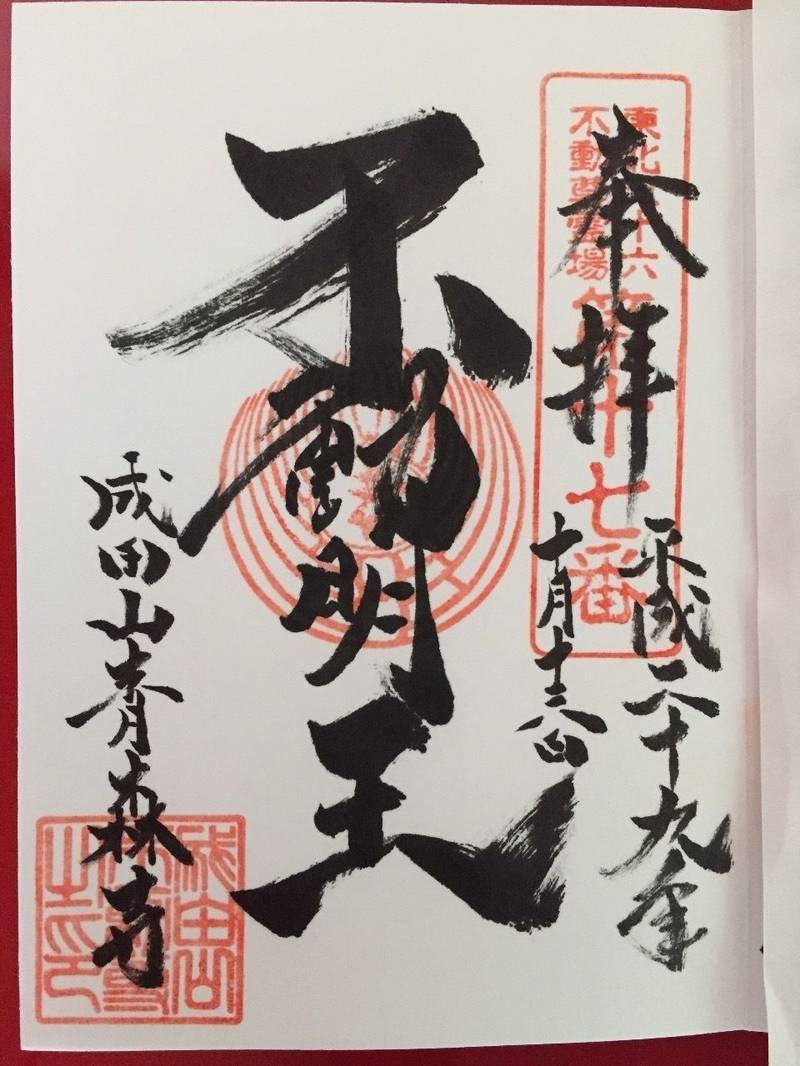 東北三十六
不動尊霊場
第十七番
奉拝
平成二十九年
十月
不動明王
成田山青森寺
成田山
之印